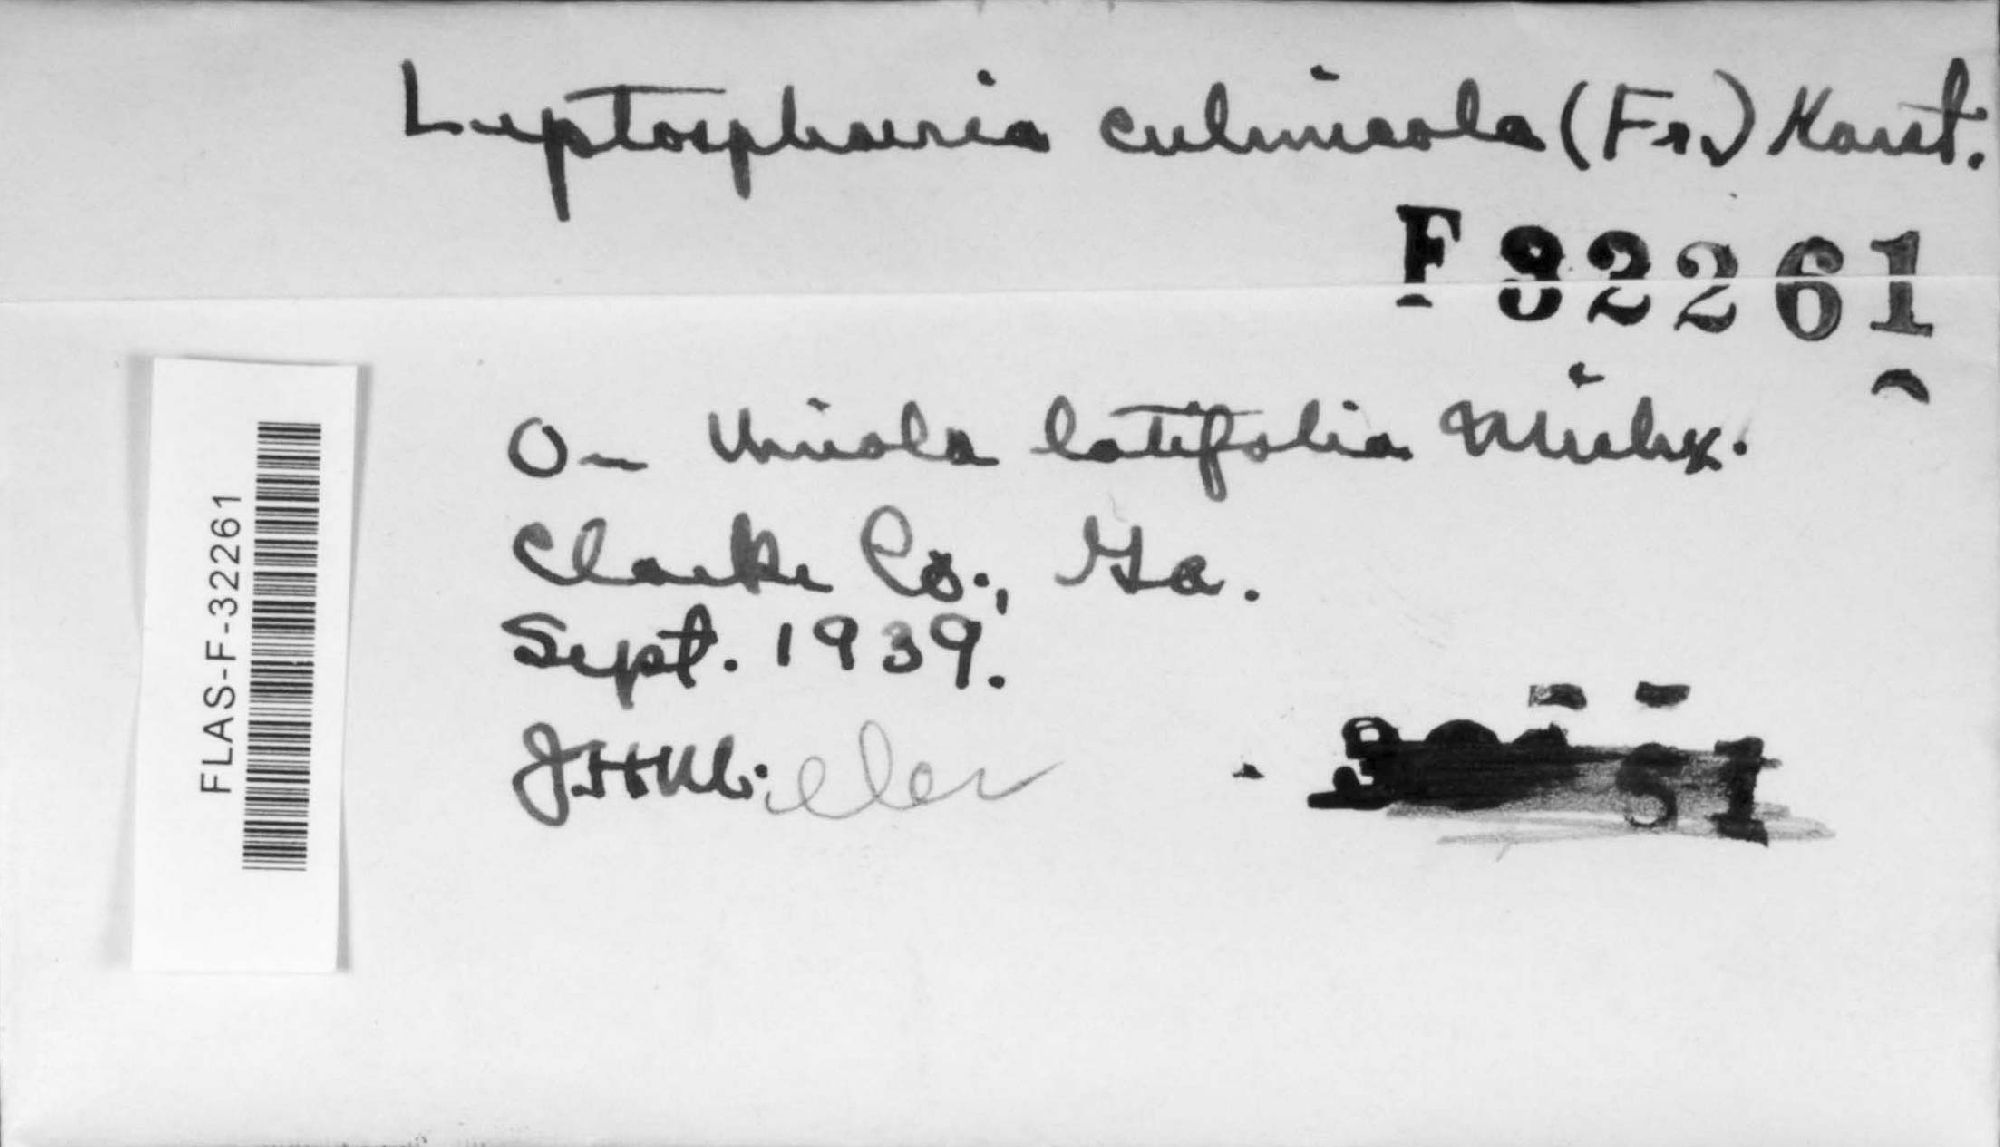 Leptosphaeria culmicola (Fr.) Karst.
F 32261
On Uniola latifolia Michx.
Clarke Co., Ga.
Sept. 1939.
JHMiller
FLAS-F-32261